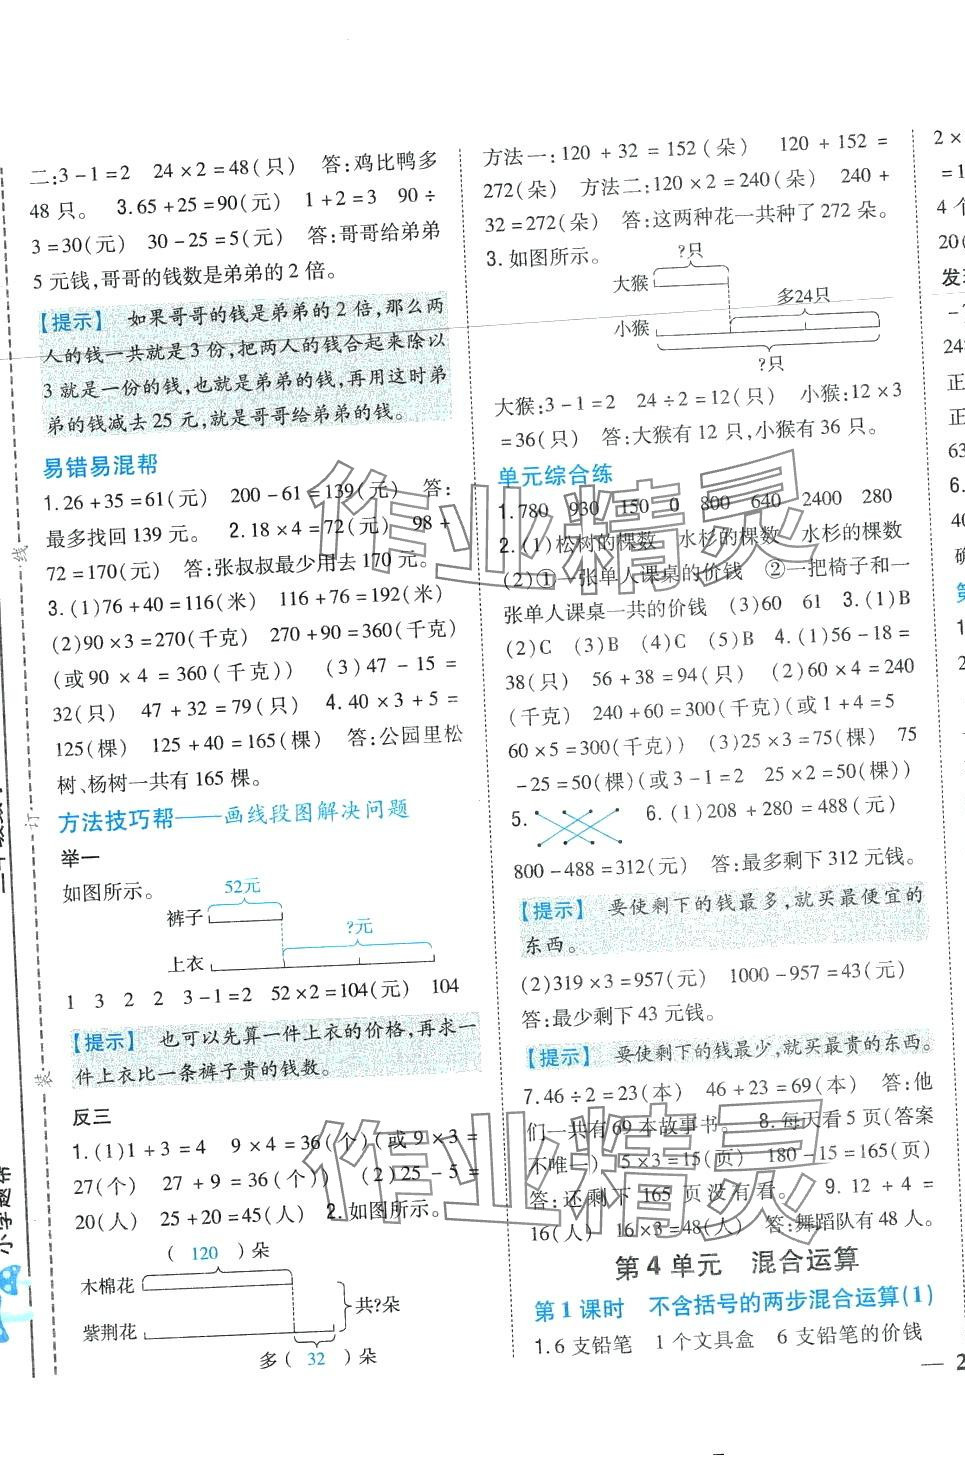 二:3-1=2 24×2=48(只) 答:鸡比鸭多
48只。 3.65+25=90(元) 1+2=3 90÷
3=30(元) 30-25=5(元) 答:哥哥给弟弟
5元钱,哥哥的钱数是弟弟的2倍。
【提示】 如果哥哥的钱是弟弟的2倍,那么两
人的钱一共就是3份,把两人的钱合起来除以
3就是一份的钱,也就是弟弟的钱,再用这时弟
弟的钱减去25元,就是哥哥给弟弟的钱。
易错易混帮
1.26+35=61(元) 200-61=139(元) 答:
最多找回139元。 2.18×4=72(元) 98+
72=170(元) 答:张叔叔最少用去170元。
3.(1)76+40=116(米) 116+76=192(米)
(2)90×3=270(千克) 270+90=360(千克)
(或90×4=360(千克)) (3)47-15=
32(只) 47+32=79(只) 4.40×3+5=
125(棵) 125+40=165(棵) 答:公园里松
树、杨树一共有165棵。
方法技巧帮——画线段图解决问题
举一
如图所示。
52元
裤子
?元
上衣
1 3 2 2 3-1=2 52×2=104(元) 104
【提示】 也可以先算一件上衣的价格,再求一
件上衣比一条裤子贵的钱数。
反三
1.(1)1+3=4 9×4=36(个)(或9×3=
27(个) 27+9=36(个)) (2)25-5=
20(人) 25+20=45(人) 2.如图所示。
(120)朵
木棉花
共?朵
紫荆花
多(32)朵
方法一:120+32=152(朵) 120+152=
272(朵) 方法二:120×2=240(朵) 240+
32=272(朵) 答:这两种花一共种了272朵。
3.如图所示。
?只
大猴
多24只
小猴
?只
大猴:3-1=2 24÷2=12(只) 小猴:12×3
=36(只) 答:大猴有12只,小猴有36只。
单元综合练
1.780 930 150 0 800 640 2400 280
2.(1)松树的棵数 水杉的棵数 水杉的棵数
(2)①一张单人课桌的价钱 ②一把椅子和一
张单人课桌一共的价钱 (3)60 61 3.(1)B
(2)C (3)B (4)C (5)B 4.(1)56-18=
38(只) 56+38=94(只) (2)60×4=240
(千克) 240+60=300(千克)(或1+4=5
60×5=300(千克)) (3)25×3=75(棵) 75
-25=50(棵)(或3-1=2 25×2=50(棵))
5. 6.(1)208+280=488(元)
800-488=312(元) 答:最多剩下312元钱。
【提示】 要使剩下的钱最多,就买最便宜的
东西。
(2)319×3=957(元) 1000-957=43(元)
答:最少剩下43元钱。
【提示】 要使剩下的钱最少,就买最贵的东西。
7.46÷2=23(本) 46+23=69(本) 答:他
们一共有69本故事书。 8.每天看5页(答案
不唯一) 15×3=15(页) 180-15=165(页)
答:还剩下165页没有看。 9.12+4=
16(人) 16×3=48(人) 答:舞蹈队有48人。
第4单元 混合运算
第1课时 不含括号的两步混合运算(1)
1.6支铅笔 1个文具盒 6支铅笔的价钱
— 2
2×
=1
4个
20(
发现
24
正
正
63
6.
40
确
第
1
2
线
订
装
小学题帮
作业精灵
作业精灵